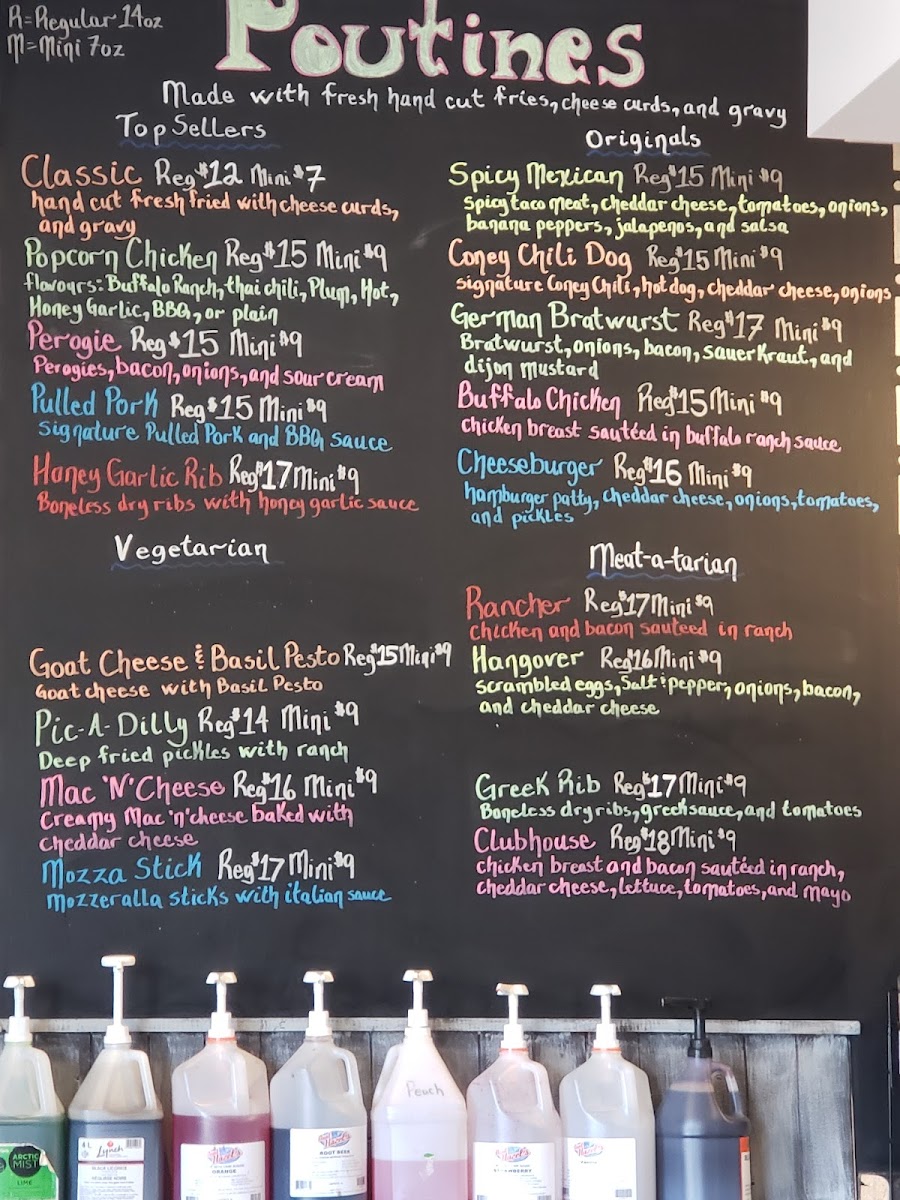 R=Regular 14oz
M=Mini 7oz
Poutines
Made with fresh hand cut fries, cheese curds, and gravy
Top Sellers
Classic Reg $12 Mini $7
hand cut fresh fried with cheese curds,
and gravy
Popcorn Chicken Reg $15 Mini $9
flavours: Buffalo Ranch, thai chili, Plum, Hot,
Honey Garlic, BBQ, or plain
Perogie Reg $15 Mini $9
Perogies, bacon, onions, and sour cream
Pulled Pork Reg $15 Mini $9
Signature Pulled Pork and BBQ sauce
Honey Garlic Rib Reg $17 Mini $9
Boneless dry ribs with honey garlic sauce
Vegetarian
Goat Cheese & Basil Pesto Reg $15 Mini $9
Goat cheese with Basil Pesto
Pic-A-Dilly Reg $14 Mini $9
Deep fried pickles with ranch
Mac 'N' Cheese Reg $16 Mini $9
Creamy Mac 'n' cheese baked with
cheddar cheese
Mozza Stick Reg $17 Mini $9
Mozzeralla sticks with italian sauce
Originals
Spicy Mexican Reg $15 Mini $9
Spicy taco meat, cheddar cheese, tomatoes, onions,
banana peppers, jalapenos, and salsa
Coney Chili Dog Reg $15 Mini $9
signature Coney Chili, hot dog, cheddar cheese, onions
German Bratwurst Reg $17 Mini $9
Bratwurst, onions, bacon, sauerkraut, and
dijon mustard
Buffalo Chicken Reg $15 Mini $9
chicken breast sautéed in buffalo ranch sauce
Cheeseburger Reg $16 Mini $9
hamburger patty, cheddar cheese, onions, tomatoes,
and pickles
Meat-a-tarian
Rancher Reg $17 Mini $9
chicken and bacon sauteed in ranch
Hangover Reg $16 Mini $9
scrambled eggs, Salt & pepper, onions, bacon,
and cheddar cheese
Greek Rib Reg $17 Mini $9
Boneless dry ribs, greek sauce, and tomatoes
Clubhouse Reg $18 Mini $9
chicken breast and bacon sautéed in ranch,
cheddar cheese, lettuce, tomatoes, and mayo
ARCTIC
MIST
LIME
4L
Lynch
BLACK LICORICE
ORANGE
ROOT BEER
Peach